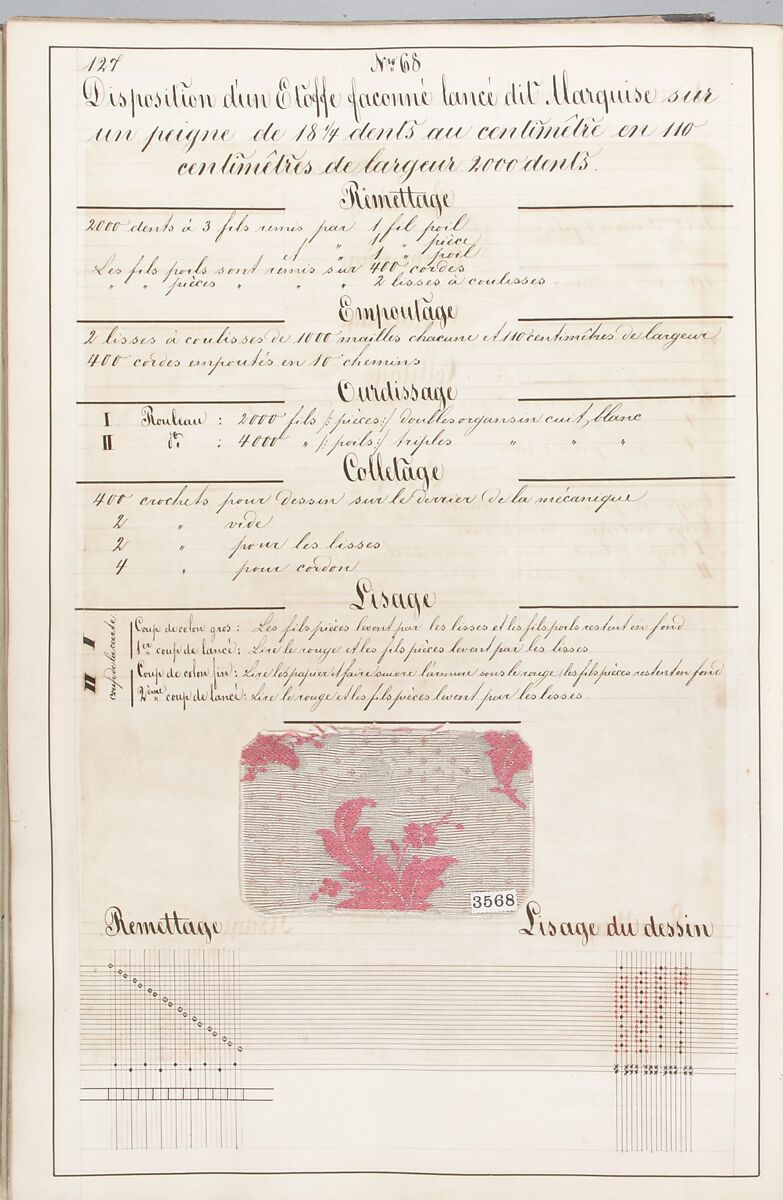 127
No. 68
Disposition d'un Etoffe façonné lancé dit Marquise sur
un peigne de 18 1/4 dents au centimètre en 110
centimêtres de largeur 2000 dents.
Remettage
2000 dents à 3 fils remis par 1 fil poil
1 " pièce
et " 1 " poil
Les fils poils sont remis sur 400 cordes
" " pièces " " " 2 lisses à coulisses
Empoutage
2 lisses à coulisses de 1000 mailles chacune et 110 centimêtres de largeur
400 cordes empoutés en 10 chemins
Ourdissage
I Rouleau : 2000 fils /: pièces :/ doubles organsin cuit, blanc
II : 4000 " /: poils :/ triples " " "
Colletage
400 crochets pour dessin sur le derrier de la mécanique
2 " vide
2 " pour les lisses
4 " pour cordon
Lisage
I Coup de coton gros : Les fils pièces levent par les lisses et les fils poils restent en fond
1er coup de lancé : Lire le rouge et les fils pièces levent par les lisses
II Coup de coton fin : Lire les papier et faire suivre l'armure sous le rouge, les fils pièces restent en fond
2ème coup de lancé : Lire le rouge et les fils pièces levent par les lisses.
3568
Remettage
Lisage du dessin